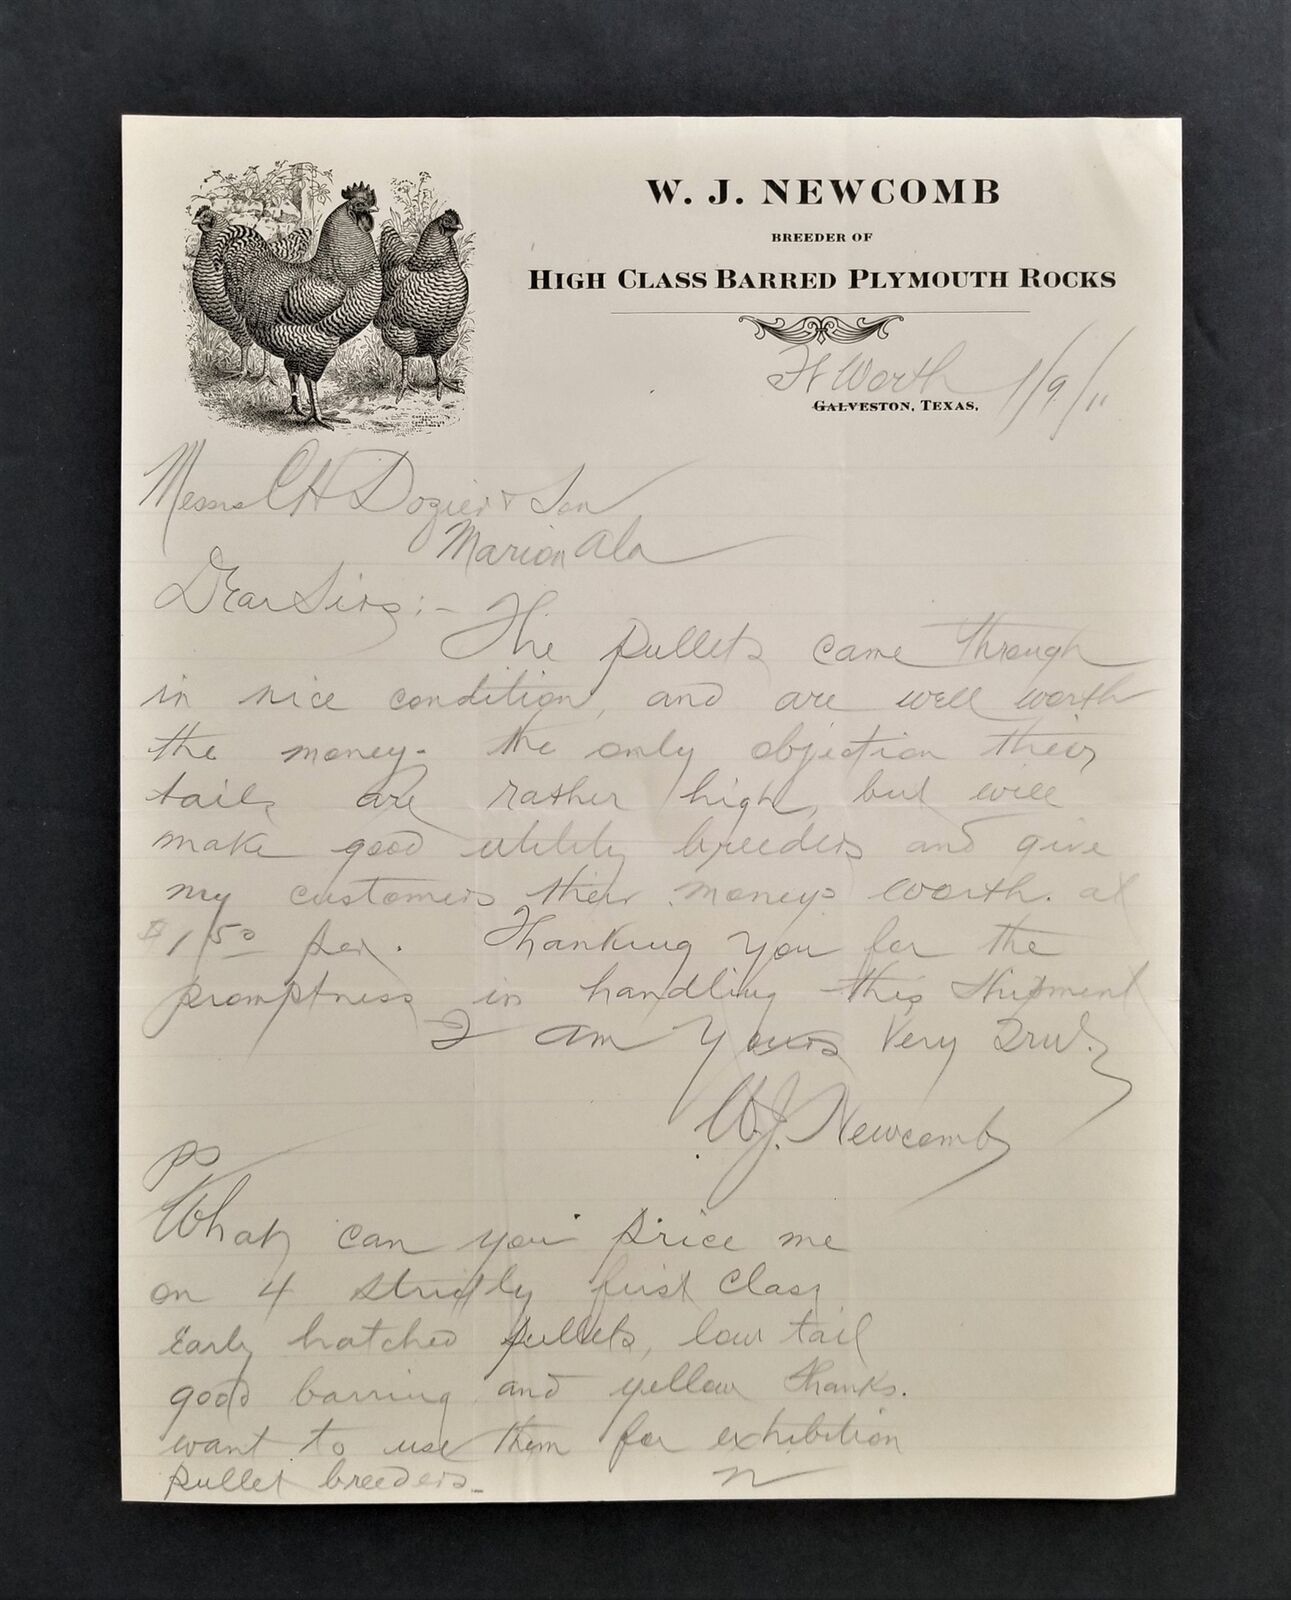 W. J. NEWCOMB
BREEDER OF
HIGH CLASS BARRED PLYMOUTH ROCKS
Ft Worth 1/9/11
GALVESTON, TEXAS,
Messrs CH Dozier & Son
Marion Ala
Dear Sirs:- The pullets came through
in nice condition, and are well worth
the money. the only objection their
tails are rather high, but will
make good utility breeders and give
my customers their moneys worth. at
$1.50 per. Thanking you for the
promptness in handling this shipment
I am Yours Very Truly
W.J. Newcomb
ps
What can you price me
on 4 strictly first class
Early hatched pullets, low tail
good barring and yellow shanks.
want to use them for exhibition
pullet breeders. N